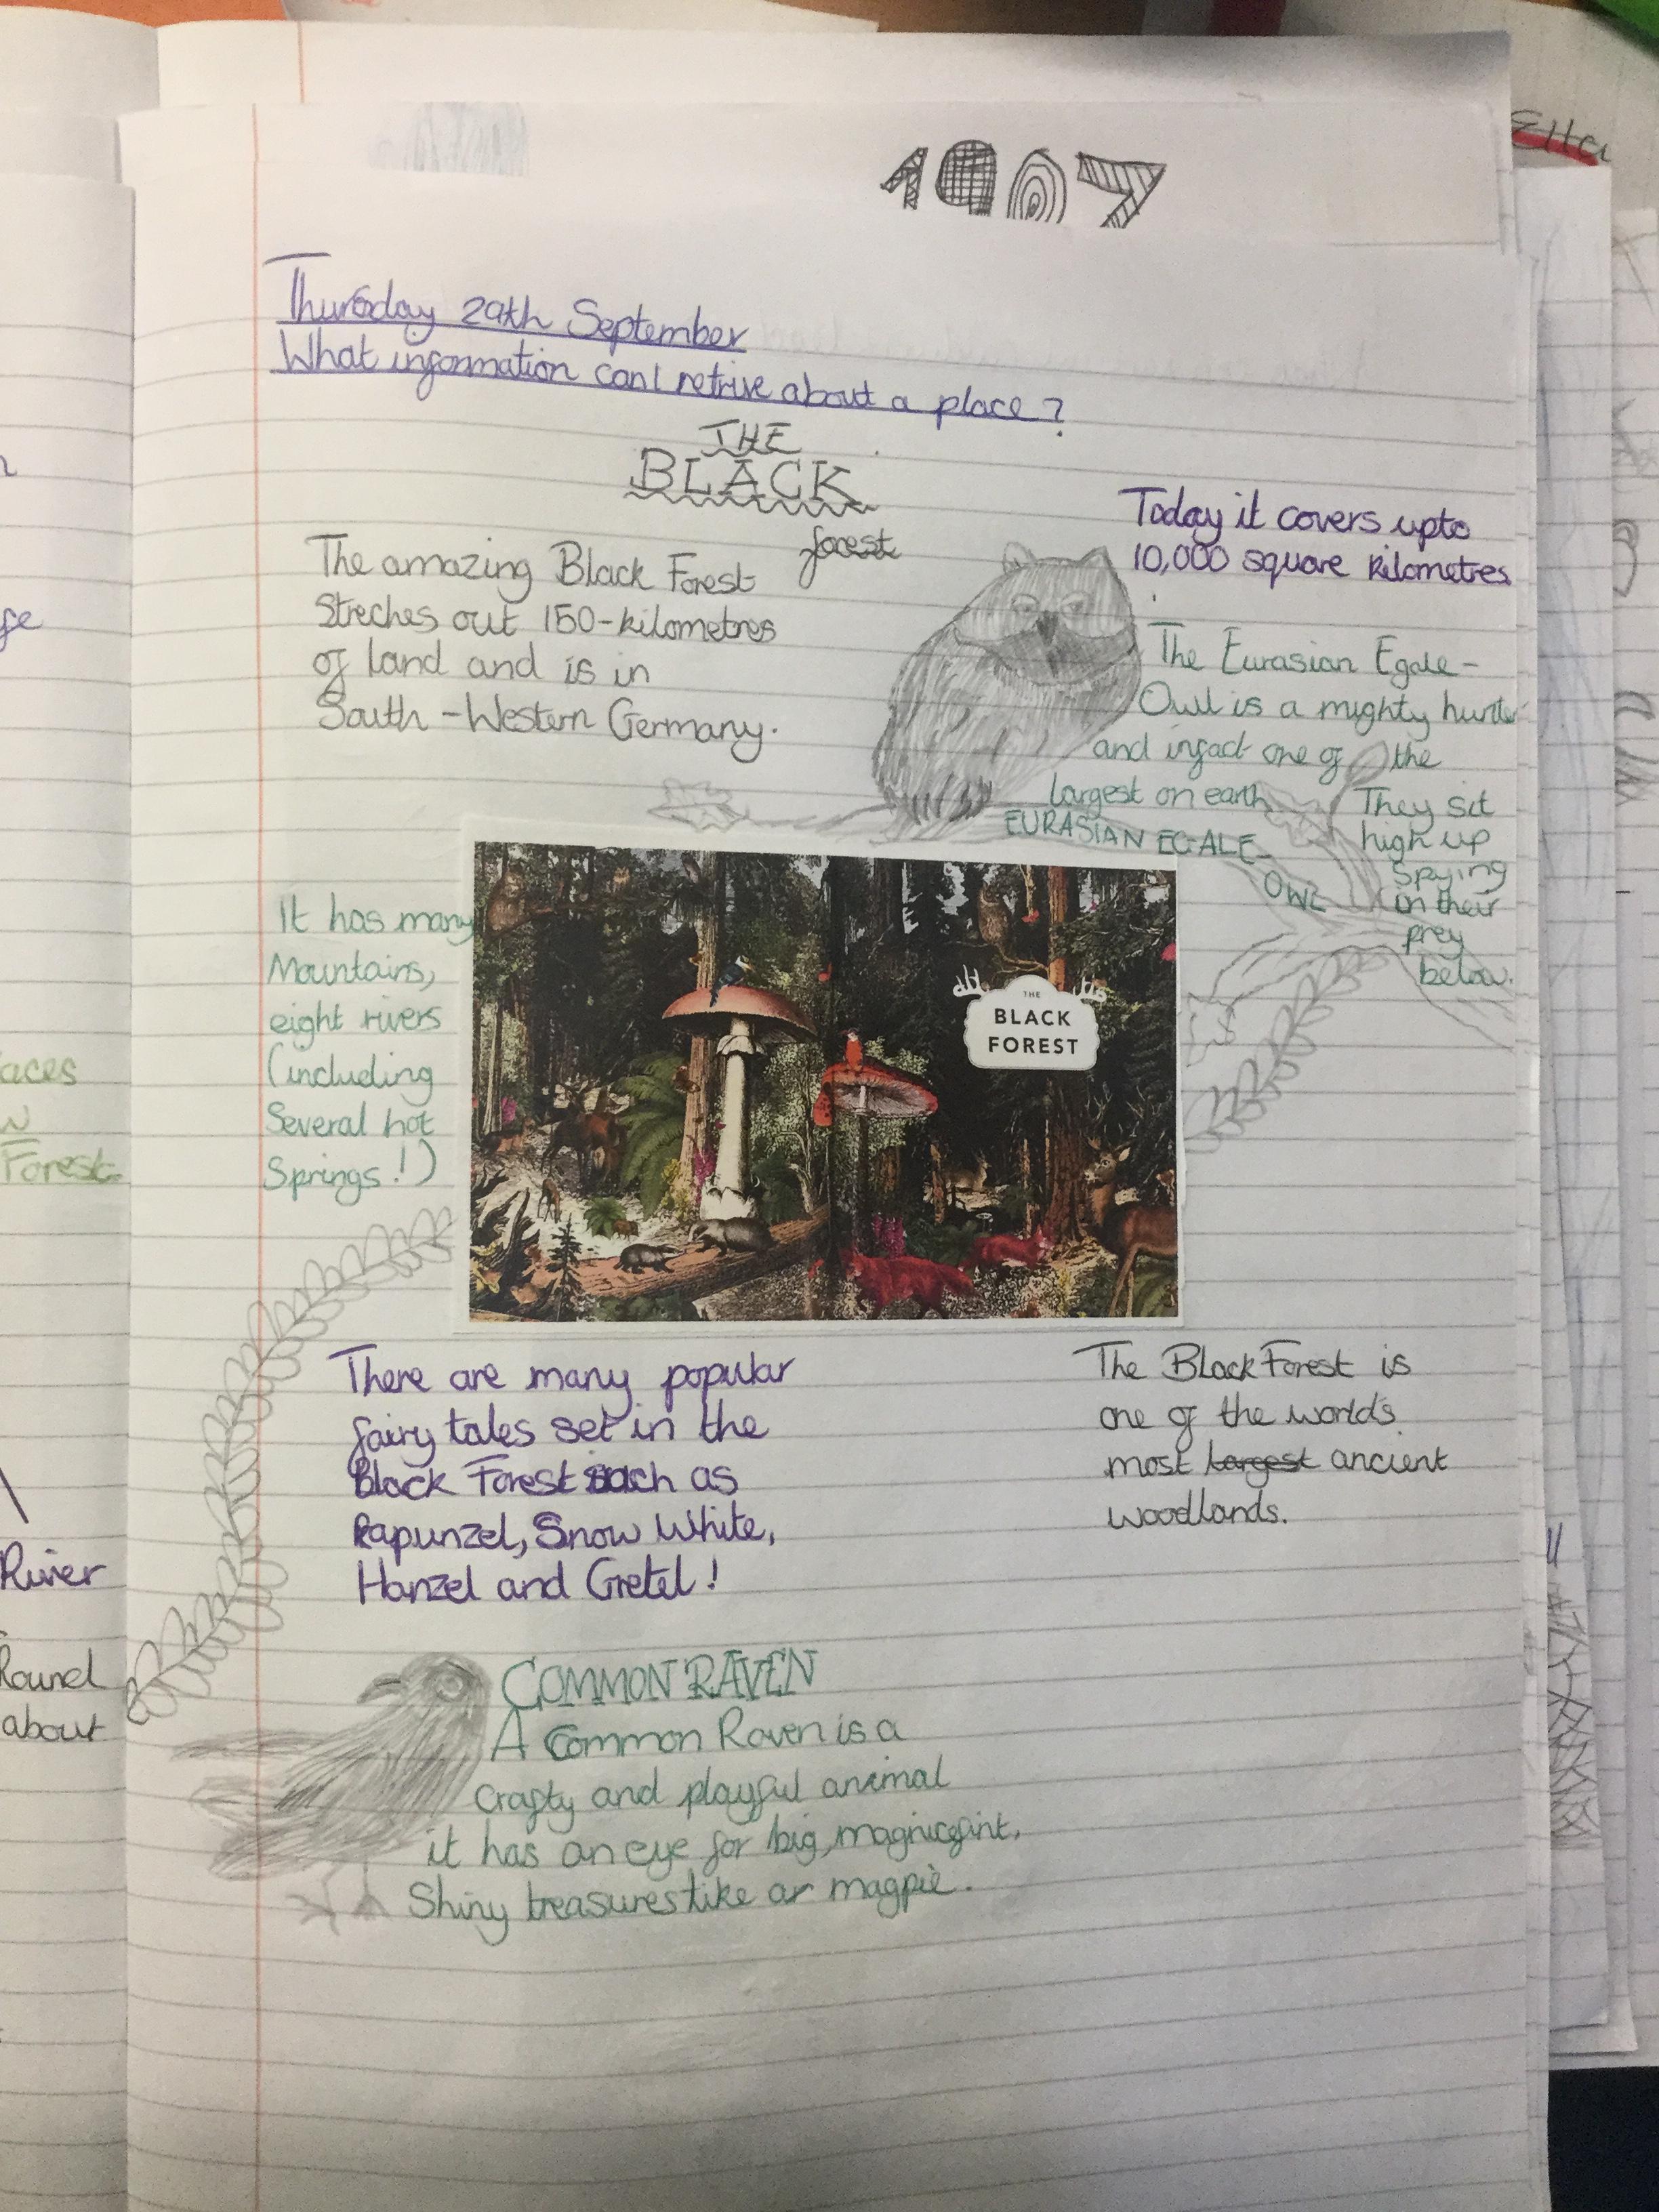 1907
Thursday 29th September
What information can I retrive about a place?
THE
BLACK
forest
The amazing Black Forest
Streches out 150-kilometres
of land and is in
South-Western Germany.
Today it covers upto
10,000 square kilometres
The Eurasian Egale-
Owl is a mighty hunter
and infact one of the
largest on earth
EURASIAN EGALE-
OWL
They sit
high up
spying
on their
prey
below.
It has many
Mountains,
eight rivers
(including
Several hot
Springs!)
THE
BLACK
FOREST
There are many popular
fairy tales set in the
Black Forest such as
Rapunzel, Snow White,
Hanzel and Gretel!
The Black Forest is
one of the world's
most largest ancient
woodlands.
COMMON RAVEN
A Common Raven is a
crafty and playful animal
it has an eye for big, magnicefint,
Shiny treasures like a magpie.
aces
Forest
River
Round
about
Ella